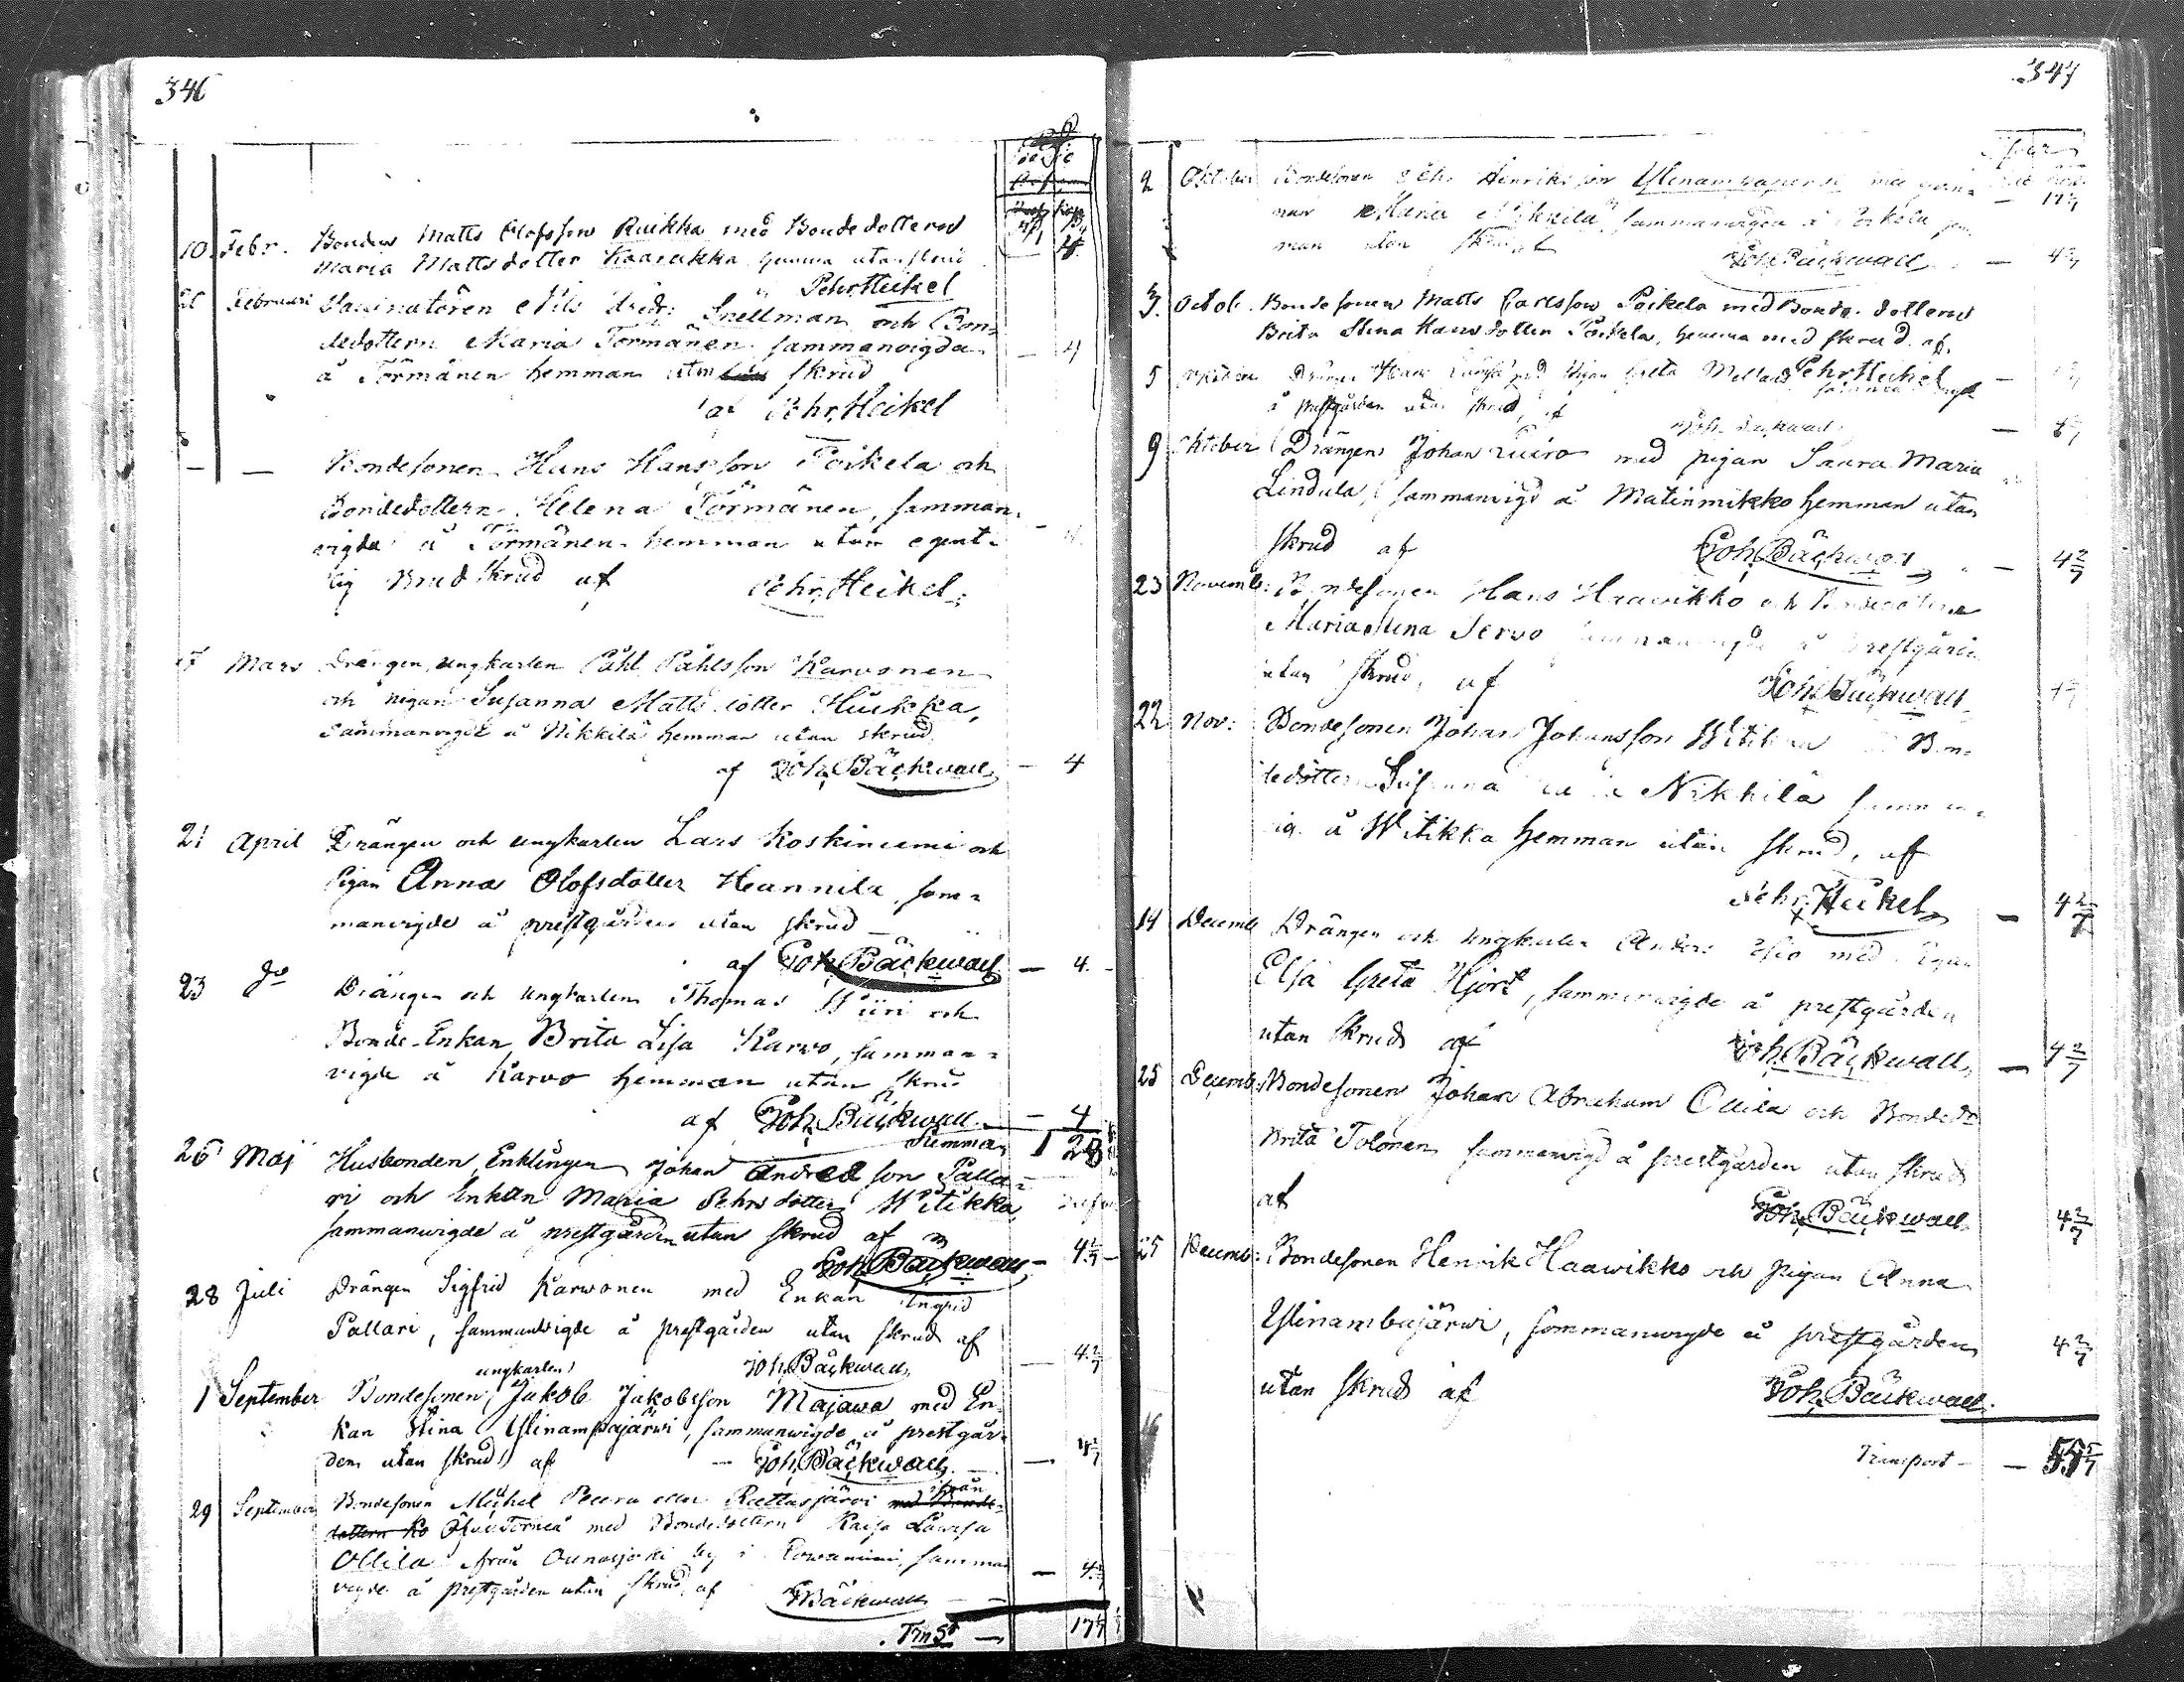 346
10. Febr. Bonden Matts Olofsson Ruikka med Bondedottren
Maria Mattsdotter Kaarukka hemma utan skrud
Pehr Heikel
Februari Vaccinatören Nils Snellman och Bon=
dedottern Maria Törmänen sammanvigda
å Törmänen hemman utan skrud — 4
af Pehr Heikel
— — Bondesonen Hans Hansson Poikela och
Bondedottern Helena Törmänen, samman=
vigda å Törmänen hemman utan egent=
lig Brudskrud af Pehr Heikel.
Mars Drängen, ungkarlen Påhl Påhlsson Karvonen
och pigan Susanna Mattsdotter Huikka,
sammanvigde å Nikkilä hemman utan skrud
af Joh. Bäckwall — 4
21 April Drängen och ungkarlen Lars Koskiniemi och
Pigan Anna Olofsdotter Heannila, sam=
manvigde å prestgården utan skrud —
af Joh. Bäckwall — 4.
23 do Drängen och ungkarlen Thomas och
Bonde-Enkan Brita Lisa Karvo, samman=
vigde å Karvo hemman utan skrud
af Joh. Bäckwall — 4
Summa 1 28
26 Maj Husbonden, Enklingen Johan Andersson Palla=
ri och Enkan Maria Pehrsdotter Witikka,
sammanwigde å prestgården utan skrud af
Joh. Bäckwall — 4 2/7
28 Juli Drängen Sigfrid Karwonen med Enkan Ingrid
Pallari, sammanvigde å prestgården utan skrud af
Joh. Bäckwall — 4 2/7
ungkarlen
1 September Bondesonen, Jakob Jakobsson Majawa med En=
kan Stina Ylinampajärwi, sammanwigde å prestgår=
den utan skrud af — Joh. Bäckwall — 4 2/7
29 September Bondesonen Michel Peura Rattasjärvi med Bonde= från
dottern Ko Öfver Torneå med Bondedottern Kaisa Lovisa
Ollila från Ounasjoki by i Rowaniemi, samman
vigde å prestgården utan skrud, af JBäckwall — 4 2/7
Trnst — 17 1/7
347
2 Oktober Bondesonen Henriksson Ylinampa med
Maria Nikkilä, sammanvigda å Poikela
man utan skrud Joh. Bäckwall — 4 2/7
3. Octob. Bondesonen Matts Carlsson Poikela med Bonde-dottern
Brita Stina Hansdotter Poikela, hemma med skrud af.
Pehr Heikel —
5 Oktober Drängen Hans med Pigan Greta
å prestgården utan skrud, af
Joh. Bäckwall —
9 Oktober Drängen Johan Luiro med pigan Saara Maria
Lindula, sammanvigd å Matinmikko hemman utan
skrud af Joh. Bäckwall — 4 2/7
23 Novemb: Bondesonen Hans Haawikko och Bondedottren
Maria Stina Servo sammanvigde å prestgården
utan skrud, af Joh. Bäckwall
22 Nov: Bondesonen Johan Johansson Witikka Bon=
dedottern Susanna Nikkilä samman=
vig. å Witikka hemman utan skrud, af
Pehr Heikel — 4 2/7
14 Decemb Drängen och ungkarlen Anders med Pigan
Elsa Greta Hjort, sammanvigde å prestgården
utan skrud af Joh. Bäckwall — 4 2/7
25 Decemb: Bondesonen Johan Abraham Ollila och Bondedr
Brita Tolonen sammanvigd å prestgården utan skrud
af Joh. Bäckwall 4 2/7
25 Decemb: Bondesonen Henrik Haawikko och Pigan Anna
Ylinambajärwi, sammanvigde å prestgården 4 2/7
utan skrud af Joh. Bäckwall.
Transport — — 55 5/7